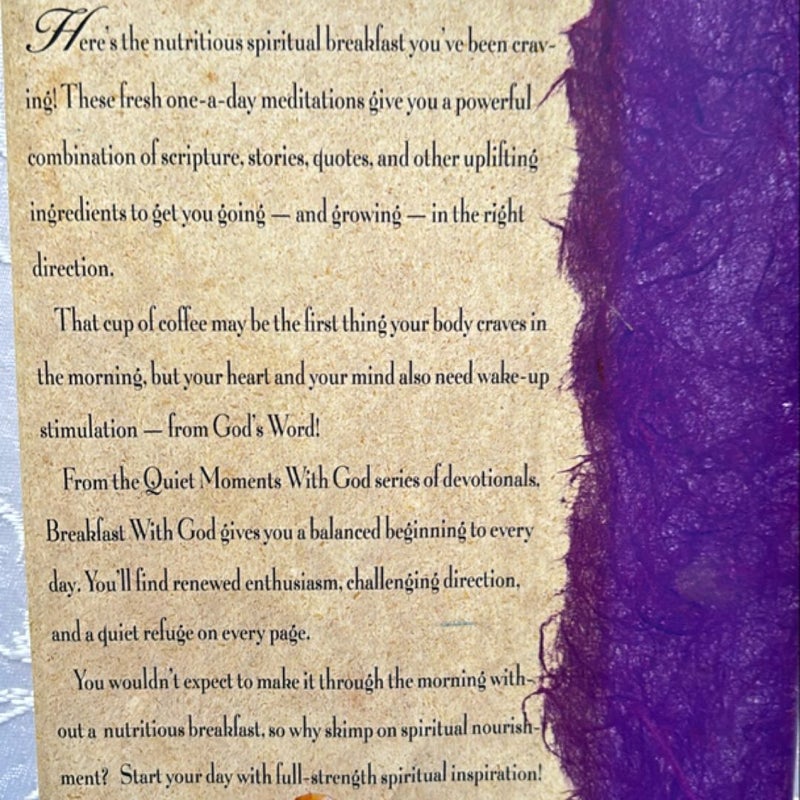 Here's the nutritious spiritual breakfast you've been crav-
ing! These fresh one-a-day meditations give you a powerful
combination of scripture, stories, quotes, and other uplifting
ingredients to get you going — and growing — in the right
direction.
That cup of coffee may be the first thing your body craves in
the morning, but your heart and your mind also need wake-up
stimulation — from God's Word!
From the Quiet Moments With God series of devotionals,
Breakfast With God gives you a balanced beginning to every
day. You'll find renewed enthusiasm, challenging direction,
and a quiet refuge on every page.
You wouldn't expect to make it through the morning with-
out a nutritious breakfast, so why skimp on spiritual nourish-
ment? Start your day with full-strength spiritual inspiration!